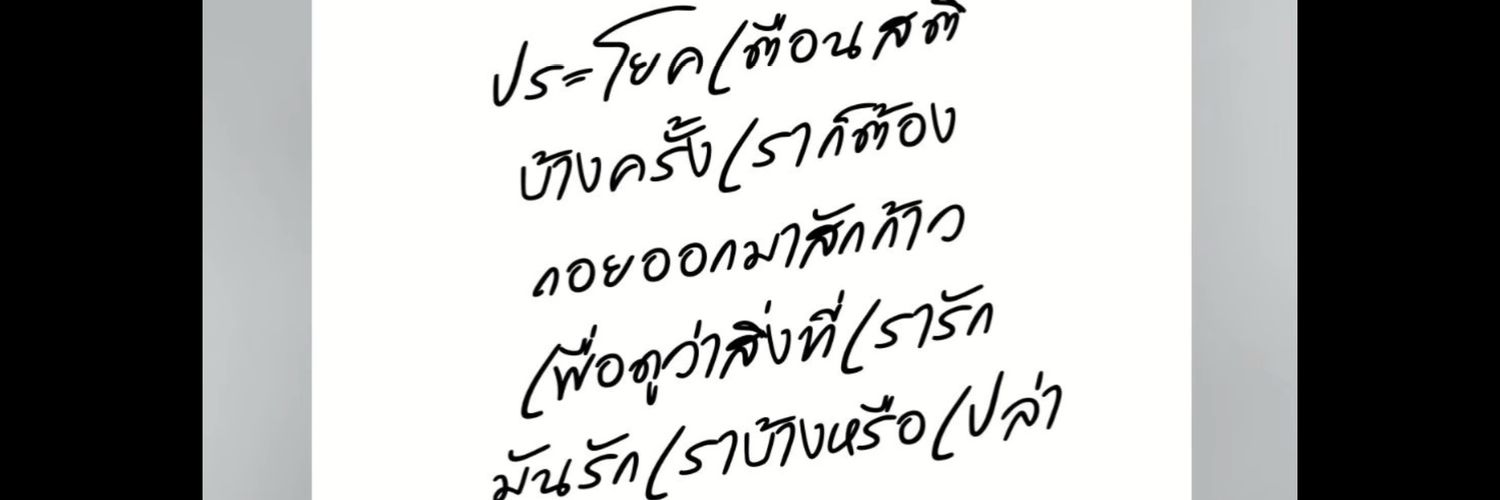 ประโยคเตือนสติ
บ้างครั้งเราก็ต้อง
ถอยออกมาสักก้าว
เพื่อดูว่าสิ่งที่เรารัก
มันรักเราบ้างหรือเปล่า